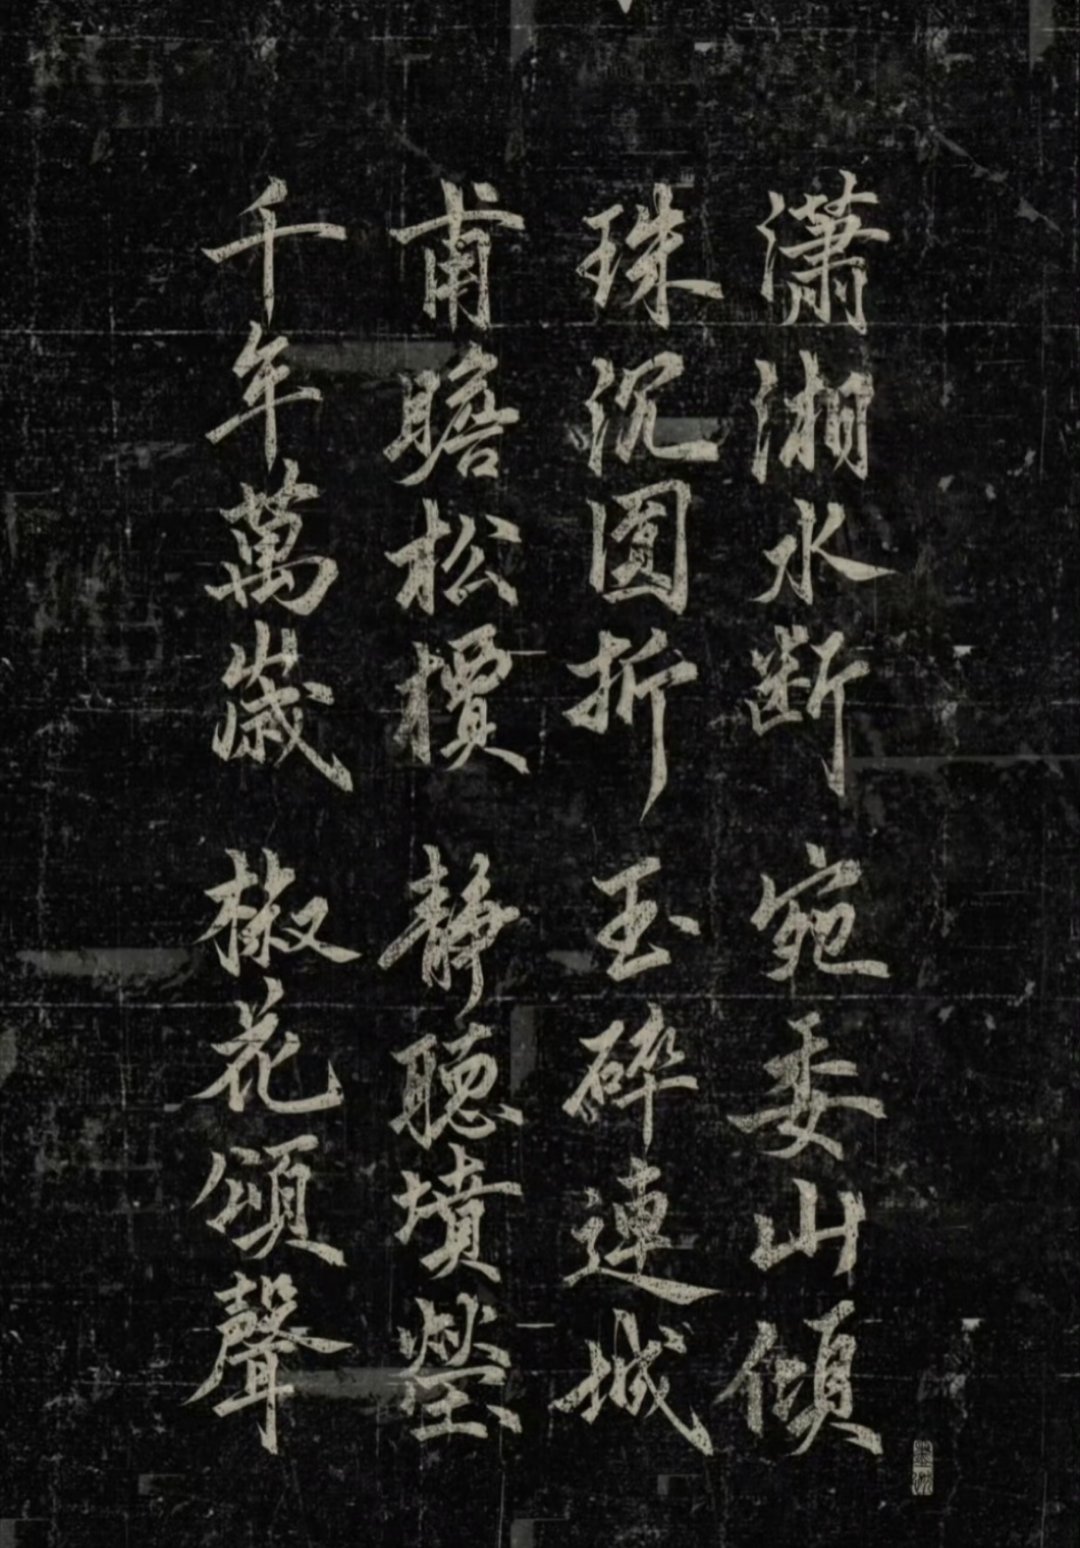 瀟湘水断 宛委山傾
珠沉圓折 玉碎連城
甫瞻松檟 静聽墳塋
千年萬歲 椒花頌聲